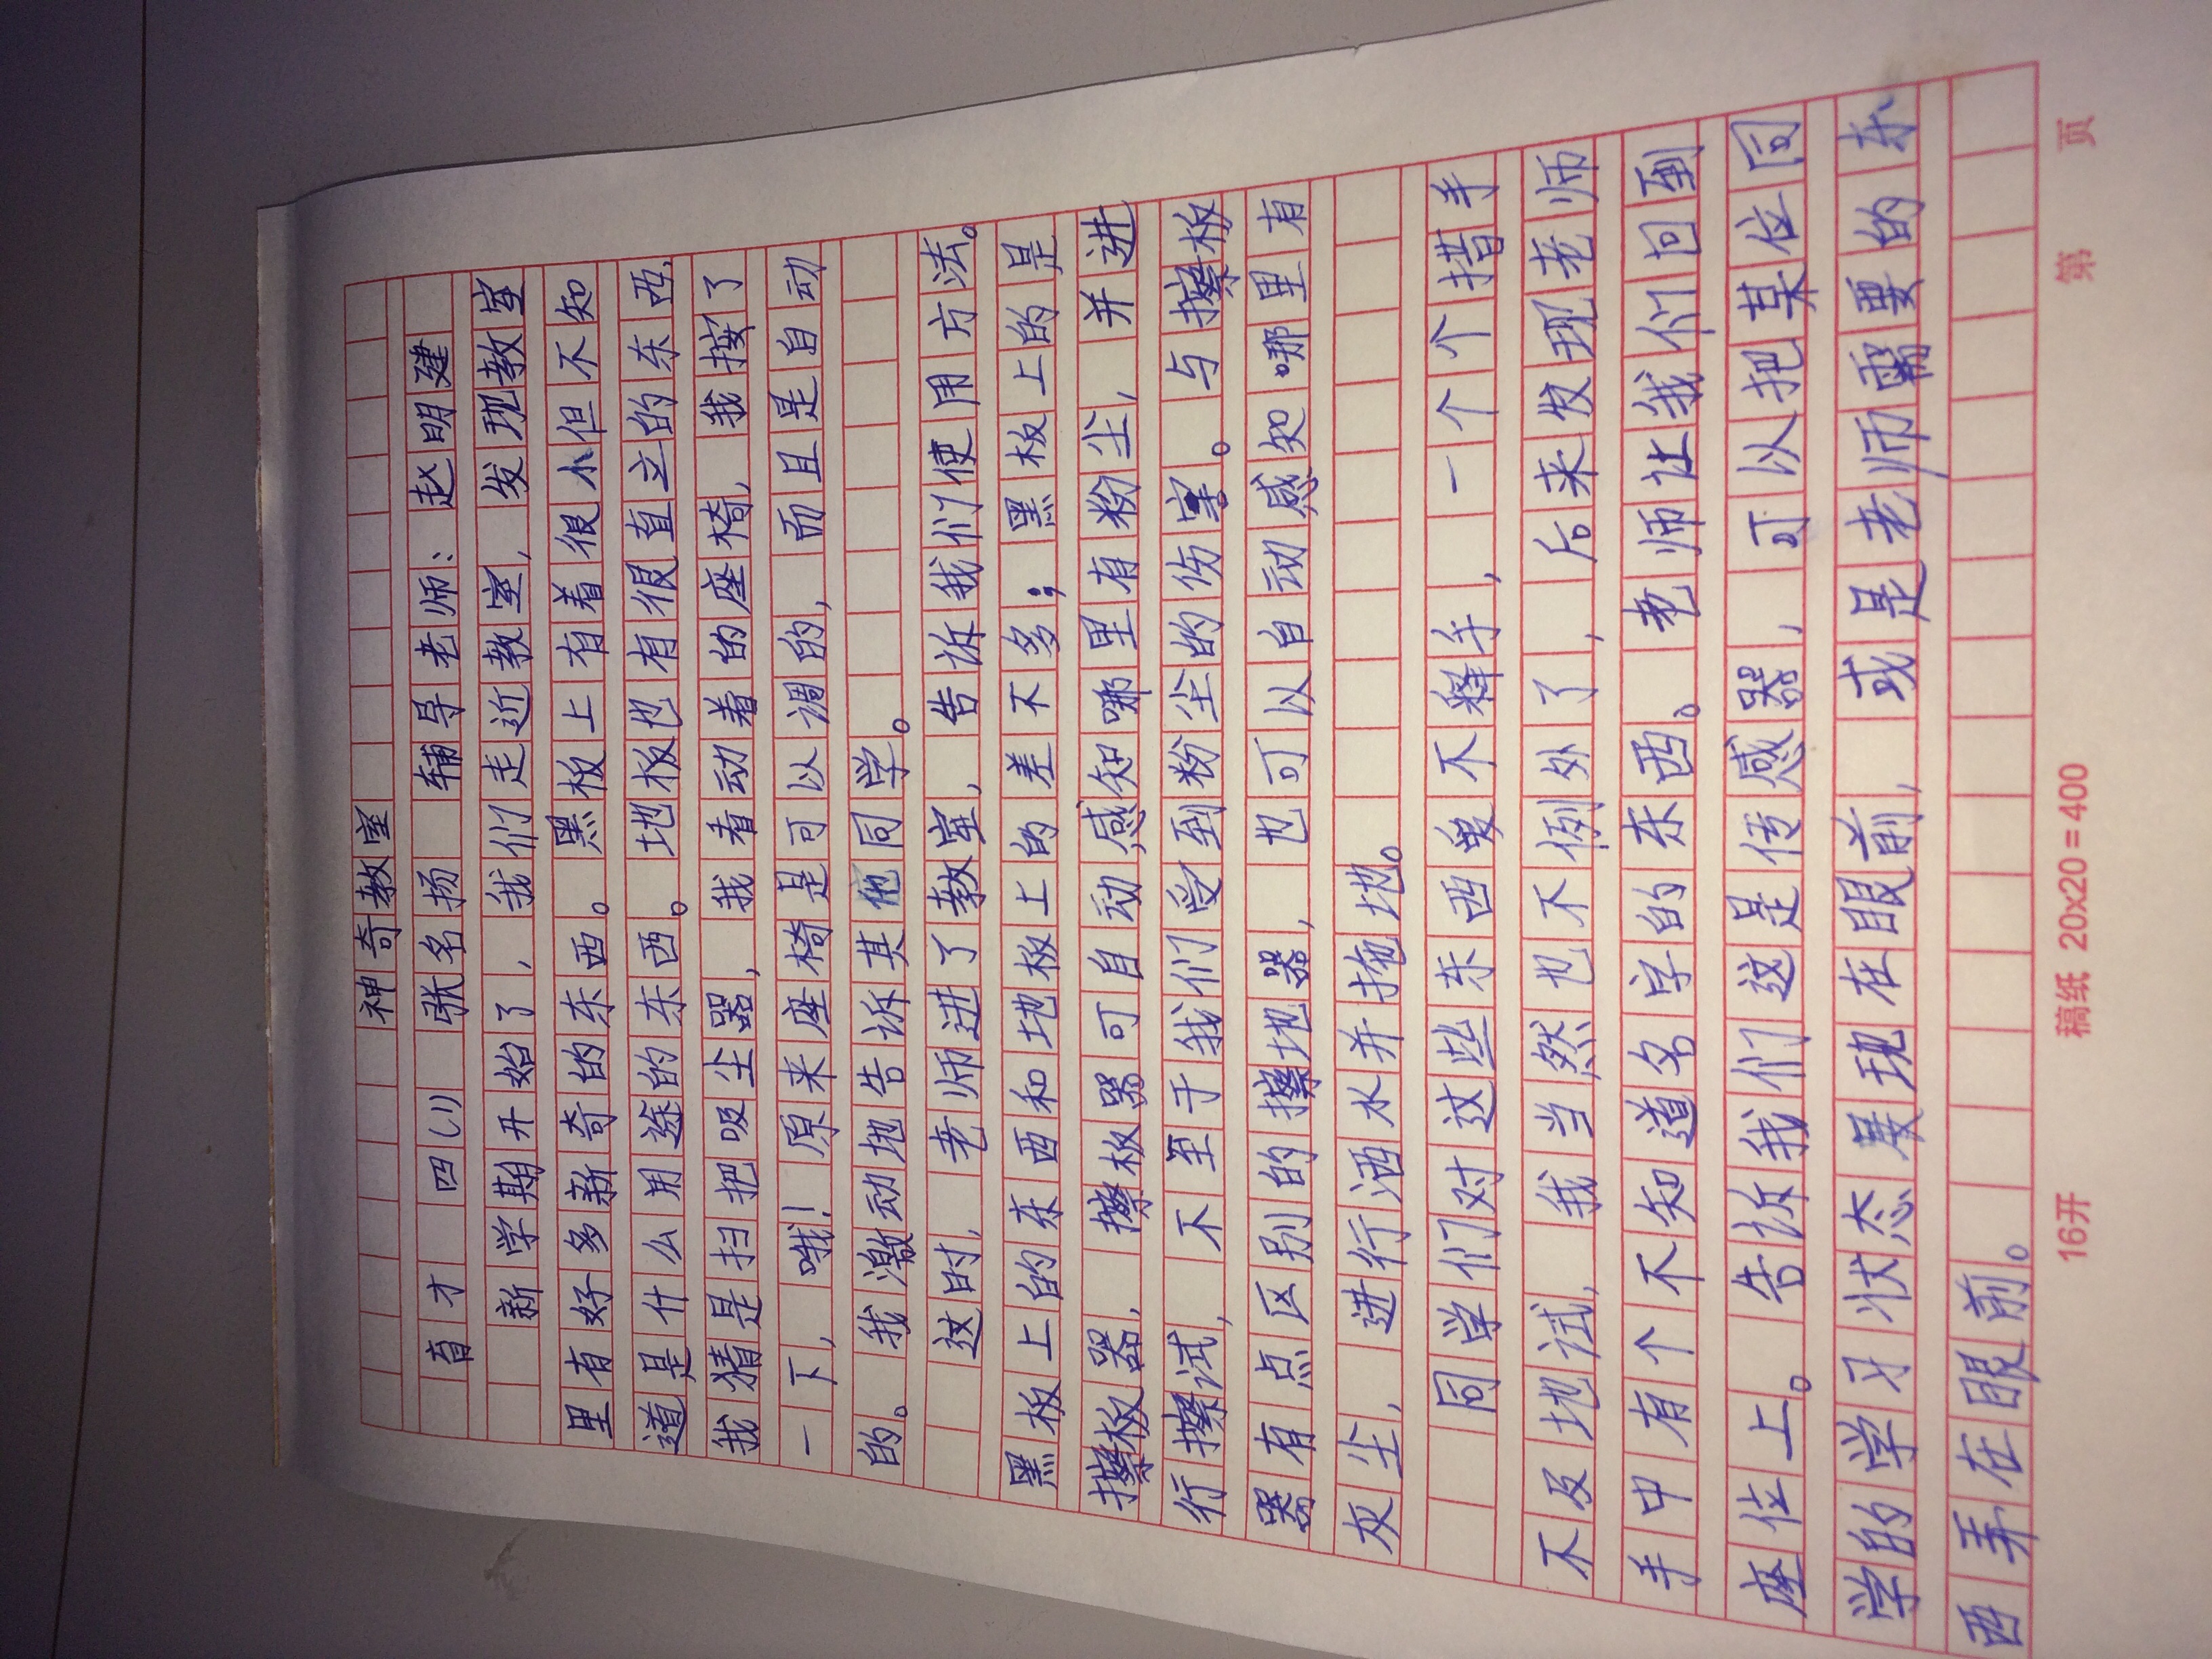 神奇教室
育才 四(1) 张名扬 辅导老师:赵明建
新学期开始了,我们走近教室,发现教室
里有好多新奇的东西。黑板上有着很小但不知
道是什么用途的东西。地板也有很直立的东西,
我猜是扫把吸尘器,我看动着的座椅,我按了
一下,哦!原来座椅是可以调的,而且是自动
的。我激动地告诉其他同学。
这时,老师进了教室,告诉我们使用方法。
黑板上的东西和地板上的差不多;黑板上的是
擦板器,擦板器可自动感知哪里有粉尘,并进
行擦试,不至于我们受到粉尘的伤害。与擦板
器有点区别的擦地器,也可以自动感知哪里有
灰尘,进行洒水并拖地。
同学们对这些东西爱不释手,一个个措手
不及地试,我当然也不例外了,后来发现老师
手中有个不知道名字的东西。老师让我们回到
座位上。告诉我们这是传感器,可以把某位同
学的学习状态展现在眼前,或是老师需要的东
西弄在眼前。
16开 稿纸 20x20=400 第 页